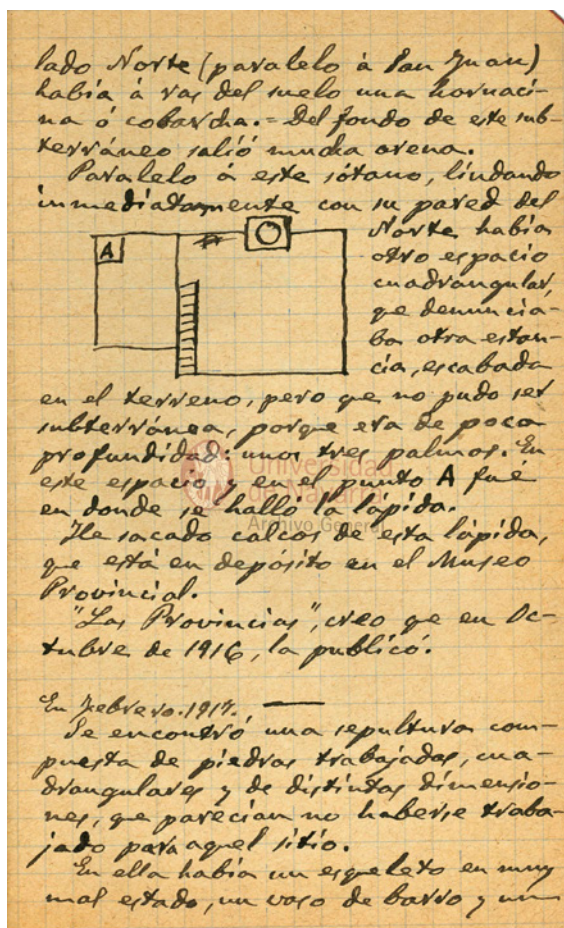 lado Norte (paralelo à San Juan)
había à ras del suelo una hornaci-
na ó cobarcha.= Del fondo de este sub-
terráneo salió mucha arena.
Paralelo à este sótano, lindando
inmediatamente con su pared del
Norte había
otro espacio
cuadrangular,
qe denuncia-
ba otra estan-
cia, escabada
A
en el terreno, pero qe no pudo ser
subterránea, porque era de poca
profundidad: unos tres palmos. En
este espacio y en el punto A fué
en donde se halló la lápida.
He sacado calcos de esta lápida,
que está en depósito en el Museo
Provincial.
"Las Provincias", creo qe en Oc-
tubre de 1916, la publicó.
En Febrero.1917.
Se encontró una sepultura com-
puesta de piedras trabajadas, cua-
drangulares y de distintas dimensio-
nes, que parecían no haberse traba-
jado para aquel sitio.
En ella había un esqueleto en muy
mal estado, un vaso de barro y un
Universidad
de Navarra
Archivo General